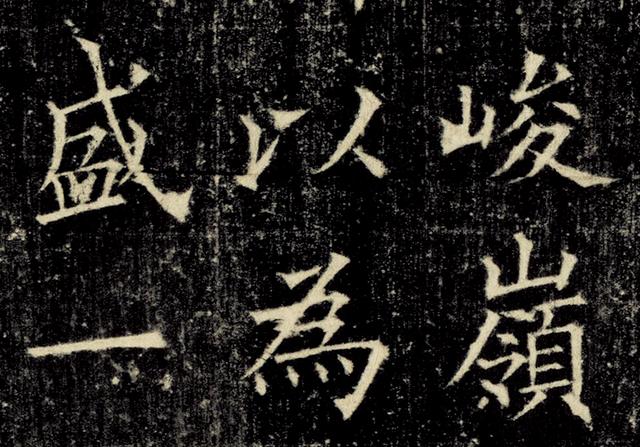 峻嶺
以為
盛一